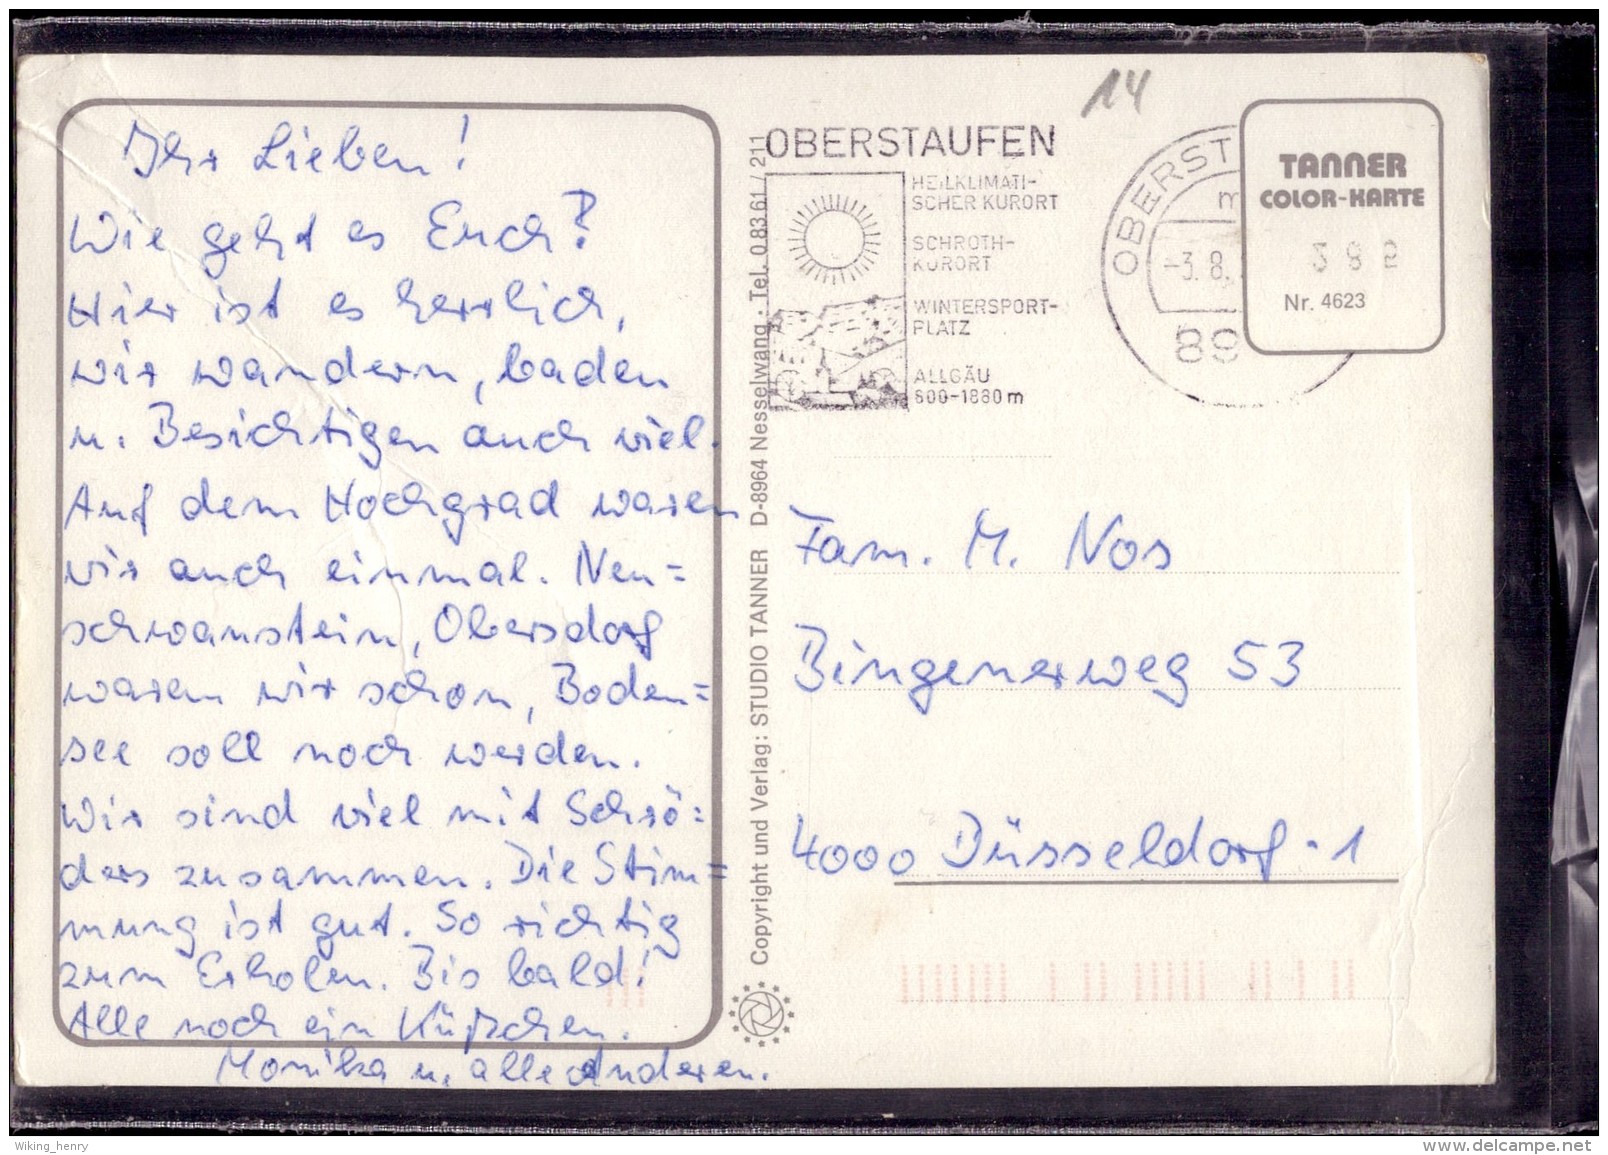 Ihr Lieben!
Wie geht es Euch?
Hier ist es herrlich,
wir wandern, baden
u. Besichtigen auch viel.
Auf dem Hochgrad waren
wir auch einmal. Neu=
schwanstein, Obersdorf
waren wir schon, Boden=
see soll noch werden.
Wir sind viel mit Schrö=
ders zusammen. Die Stim=
mung ist gut. So richtig
zum Erholen. Bis bald!
Alle noch ein Küßchen.
Monika u. alle Anderen.
Copyright und Verlag: STUDIO TANNER D-8964 Nesselwang · Tel. 0 83 61 / 211
14
OBERSTAUFEN
HEILKLIMATI-
SCHER KURORT
SCHROTH-
KURORT
WINTERSPORT-
PLATZ
ALLGÄU
800-1880 m
OBERST
m
-3.8.
89
TANNER
COLOR-KARTE
Nr. 4623
Fam. M. Nos
Bingenerweg 53
4000 Düsseldorf - 1
Wiking_henry
www.delcampe.net